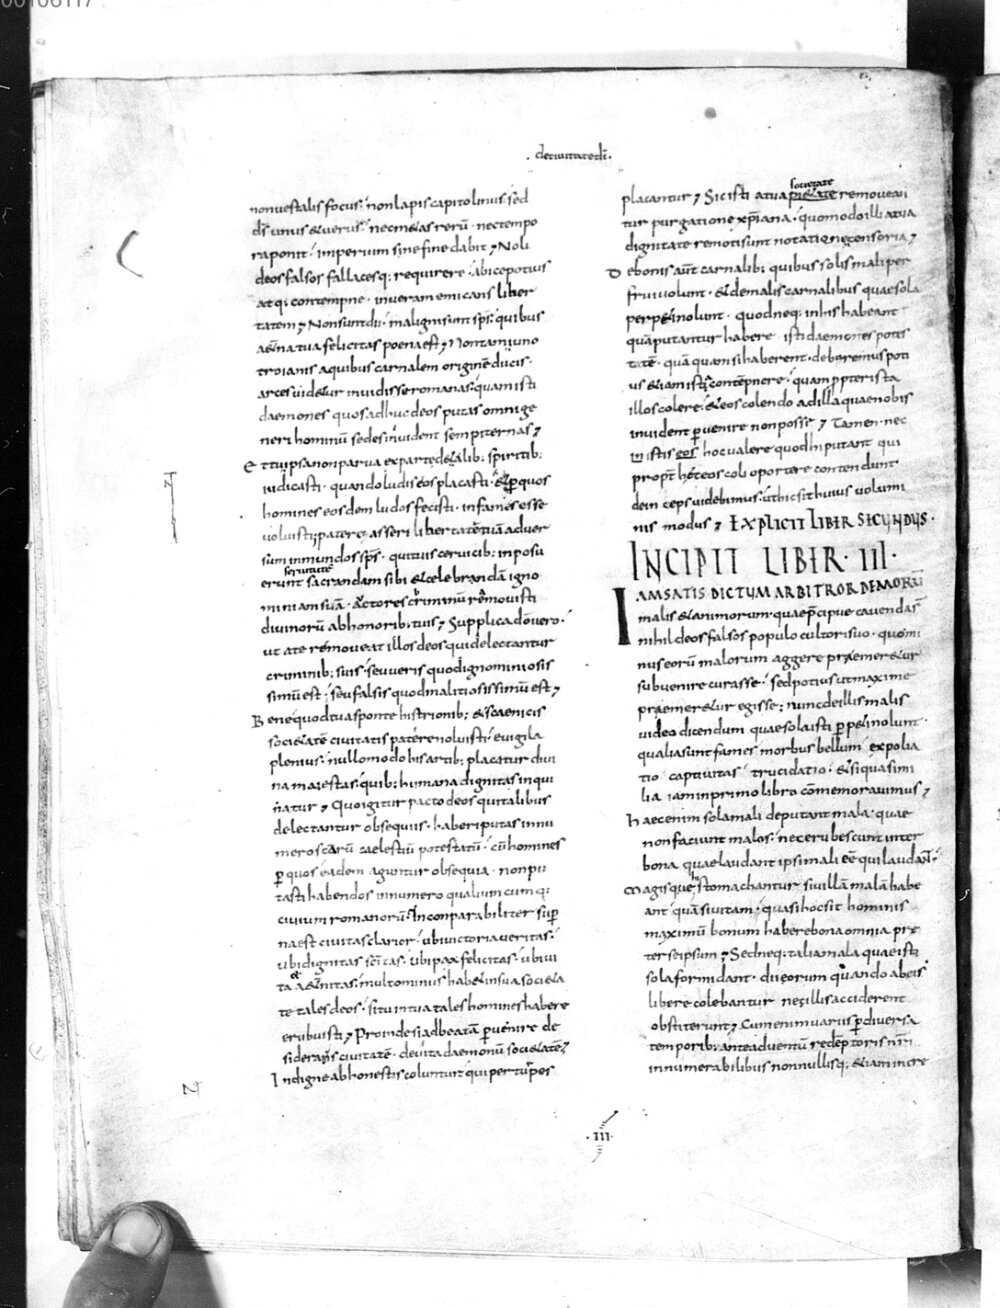 00106117
· deciuitatedi ·
nonuestalis focus · non lapis capitolinus · sed
ds unus & uerus · nec metas rerū · nec tempo
ra ponit · imperium sine fine dabit ; Noli
deos falsos fallacesq; requirere · abice potius
atq; contempne · in ueram emicans liber
tatem ; Non sunt dii · maligni sunt sps · quibus
aet̄na tua felicitas poena est ; Non tam iuno
troianis a quibus carnalem originē ducis ·
arces uidetur inuidisse romanas · quam isti
daemones quos adhuc deos putas omni ge
neri hominū sedes inuident sempiternas ;
Et tu ipsa non parua ex parte de talib; spiritib;
iudicasti · quando ludis eos placasti · & p quos
homines eosdem ludos fecisti · infames esse
uoluisti ; patere asseri libertatē tuā aduer
sum inmundos sps · qui tuis ceruicib; inposu
seruitutē
erunt sacrandam sibi & celebrandā igno
miniam suā · Actores criminū remouisti
diuinorū ab honorib; tuis ; Supplica dō uero ·
ut a te remoueat illos deos qui delectantur
criminib; suis · seu ueris quod ignominiosis
simū est · seu falsis quod malitiosissimū est ;
Bene quod tua sponte histrionib; & scaenicis
societatē ciuitatis patere noluisti · euigila
plenius · nullo modo his artib; placatur diui
na maiestas · quib; humana dignitas inqui
natur ; Quo igitur pacto deos qui talibus
delectantur obsequiis · haberi putas in nu
mero scārū caelestiū potestatū · cū homines
p quos eadem aguntur obsequia · non pu
tasti habendos in numero qualium cumq;
ciuium romanorū · Inconparabiliter sup
na est ciuitas clarior · ubi uictoria ueritas ·
ubi dignitas scītas · ubi pax felicitas · ubi ui
ta aet̄nitas · multo minus habet in sua societa
te tales deos · si tu in tua tales homines habere
erubuisti ; Proinde si ad beatā puenire de
sideras ciuitatē · deuita daemonū societatē ;
Indigne ab honestis coluntur qui per turpes
societate
placantur ; Sic isti a tua pietate remouean
tur purgatione xpīana · quomodo illi a tua
dignitate remoti sunt notatione censoria ;
De bonis aūt carnalib; quibus solis mali per
frui uolunt · & de malis carnalibus quae sola
perpeti nolunt · quod neq; in his habeant
quā putantur habere isti daemones potes
tatē · quā quam si haberent · deberemus poti
us etiam ista contēpnere · quam ppter ista
illos colere · & eos colendo ad illa quae nobis
inuident puenire non posse ; Tamen nec
in istis eos hoc ualere quod hi putant qui
propt̄ haec eos coli oportere contendunt
deinceps uidebimus · ut hic sit huius uolumi
nis modus ; EXPLICIT LIBER SECUNDUS ·
INCIPIT LIBER · III ·
IAM SATIS DICTUM ARBITROR DE MORŪ
malis & animorum · quae p̄cipue cauenda s̄
nihil deos falsos populo cultori suo · quo mi
nus eorū malorum aggere praemeretur
subuenire curasse · sed potius ut maxime
praemeretur egisse ; nunc de illis malis
uideo dicendum quae sola isti ppeti nolunt ·
qualia sunt fames morbus bellum expolia
tio captiuitas trucidatio · & si qua simi
lia iam in primo libro cōmemorauimus ;
Haec enim sola mali deputant mala · quae
non faciunt malos · nec erubescunt inter
bona quae laudant ipsi mali ēē qui laudant ·
Magisque stomachantur si uillā malā habe
ant quā si uitam · quasi hoc sit hominis
maximū bonum habere bona omnia prę
ter se ipsum ; Sed neq; talia mala quae isti
sola formidant · dii eorum quando ab eis
libere colebantur ne illis acciderent
obstiterunt ; Cum enim uariis p diuersa
temporib; ante aduentū redēptoris nr̄i
innumerabilibus nonnullisq; etiam incre
· III ·